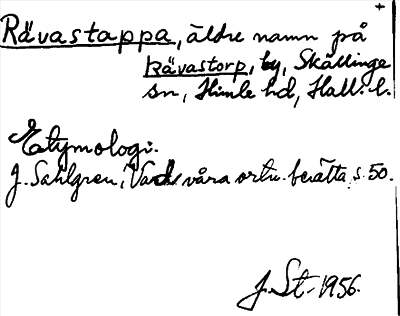 +
Rävastappa, äldre namn på
Rävastorp, by, Skällinge
sn, Himle hd, Hall. l.
Etymologi.
J. Sahlgren, Vad våra ortn. berätta, s. 50.
J. St. 1956.